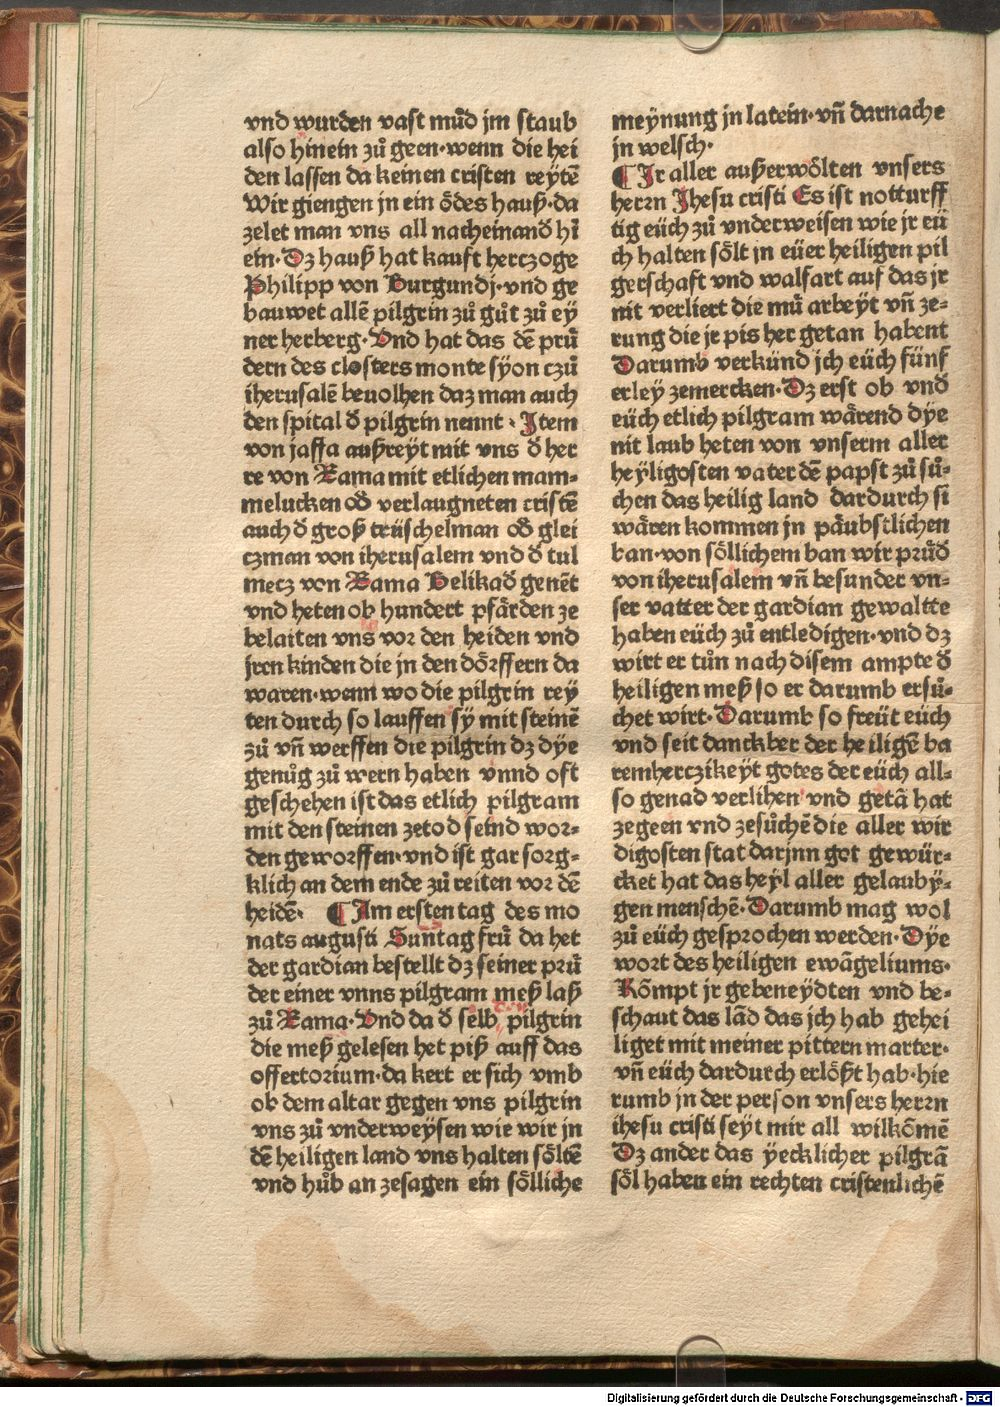 vnd wurden vast můd jm staub
also hinein zů geen·wenn die hei
den lassen da keinen cristen reytē
Wir giengen jn ein ödes hauß·da
zelet man vns all nacheinand̄ hī
ein·Dz hauß hat kauft herczoge
Philipp von Burgundj·vnd ge
bauwet allē pilgrin zů gůt zů ey
ner herberg·Vnd hat das dē prů
dern des closters monte sÿon czů
iherusalē beuolhen daz man auch
den spital d̄ pilgrin nennt·Item
von jaffa außreyt mit vns d̄ her
re von Rama mit etlichen mam⸗
melucken od̄ verlaugneten cristē
auch d̄ groß trüschelman od̄ glei
czman von iherusalem vnd d̄ tul
mecz von Rama Helikad̄ genēt
vnd heten ob hundert pfärden ze
belaiten vns vor den heiden vnd
jren kinden die jn den dörffern da
waren·wenn wo die pilgrin rey
ten durch so lauffen sÿ mit steinē
zů vn̄ werffen die pilgrin dz dÿe
genůg zů wern haben vnnd oft
geschehen ist das etlich pilgram
mit den steinen zetod seind wor⸗
den geworffen·vnd ist gar sorg⸗
klich an dem ende zů reiten vor dē
heidē· ¶ Am ersten tag des mo
nats augusti Suntag frů da het
der gardian bestellt dz seiner prů
der einer vnns pilgram meß laß
zů Rama·Vnd da d̄ selb pilgrin
die meß gelesen het piß auff das
offertorium·da kert er sich vmb
ob dem altar gegen vns pilgrin
vns zů vnderweysen wie wir jn
dē heiligen land vns halten söltē
vnd hůb an zesagen ein sölliche
meÿnung jn latein·vn̄ darnache
jn welsch·
¶ Ir aller außerwölten vnsers
herrn Jhesu cristi Es ist notturff
tig eüch zů vnderweisen wie jr eü
ch halten sölt jn eüer heiligen pil
gerschaft vnd walfart auf das jr
nit verliert die mů arbeÿt vn̄ ze⸗
rung die jr pis her getan habent
Darumb verkünd jch eüch fünf
erley zemercken·Dz erst ob vnd̄
eüch etlich pilgram wärend dÿe
nit laub heten von vnserm aller
heÿligosten vater dē papst zů sů⸗
chen das heilig land dardurch si
wären kommen jn päubstlichen
ban·von söllichem ban wir průd̄
von iherusalem vn̄ besunder vn⸗
ser vatter der gardian gewaltte
haben eüch zů entledigen·vnd dz
wirt er tůn nach disem ampte d̄
heiligen meß so er darumb ersů⸗
chet wirt·Darumb so freüt eüch
vnd seit danckber der heiligē ba
remherczikeÿt gotes der eüch all⸗
so genad verlihen vnd getā hat
zegeen vnd zesůchē die aller wir
digosten stat darjnn got gewür⸗
cket hat das heÿl aller gelaubÿ⸗
gen menschē·Darumb mag wol
zů eüch gesprochen werden·Dÿe
wort des heiligen ewāgeliums·
Kōmpt jr gebeneÿdten vnd be⸗
schaut das lād das jch hab gehei
liget mit meiner pittern marter·
vn̄ eüch dardurch erlößt hab·hie
rumb jn der person vnsers herrn
ihesu cristi seyt mir all wilkōmē
Dz ander das ÿecklicher pilgrā
söl haben ein rechten cristenlichē
Digitalisierung gefördert durch die Deutsche Forschungsgemeinschaft - DFG